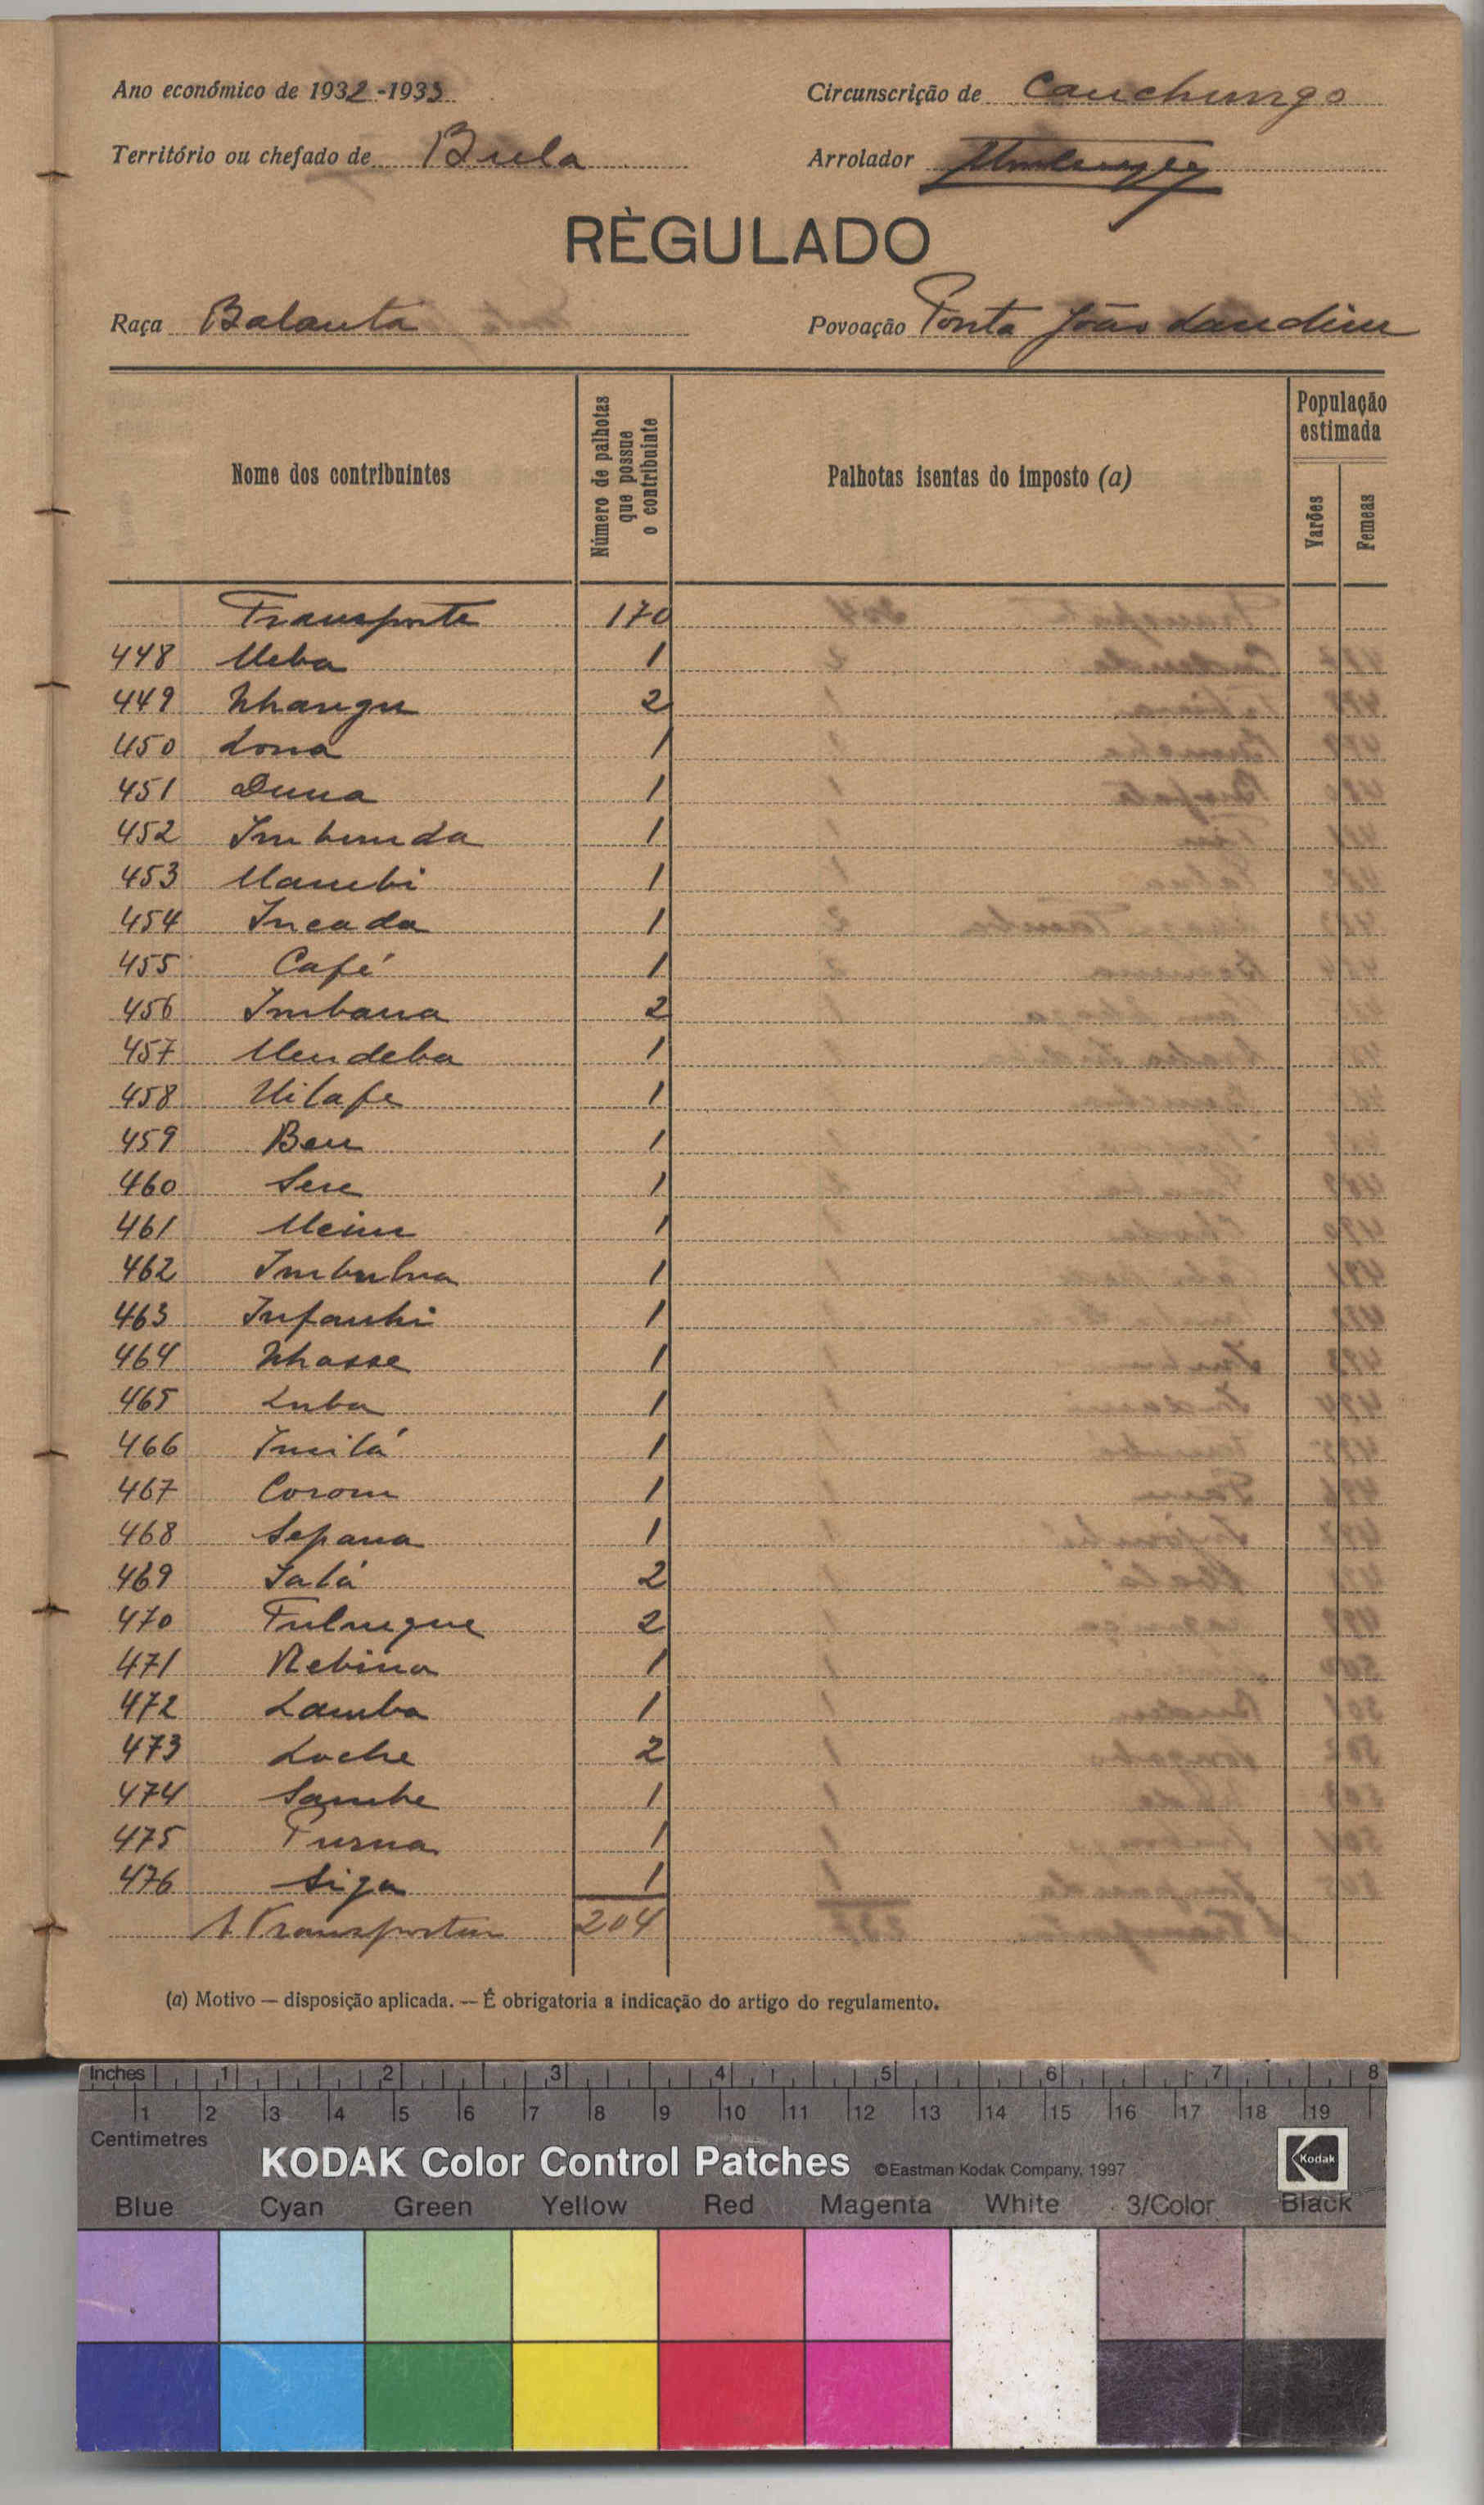 Ano económico de 1932-1933
Circunscrição de Canchungo
Território ou chefado de Bula
Arrolador
RÈGULADO
Raça Balanta
Povoação Ponta João Landim
Nome dos contribuintes
Número de palhotas que possue o contribuinte
Palhotas isentas do imposto (a)
População estimada
Varões
Femeas
Transporte 170
448 Meba 1
449 Nhangu 2
450 Lona 1
451 Duna 1
452 Imbunda 1
453 Mambi 1
454 Incada 1
455 Café 1
456 Imbana 2
457 Mendeba 1
458 Uilafe 1
459 Ben 1
460 Sene 1
461 1
462 1
463 Infanhi 1
464 Nhasse 1
465 Luba 1
466 1
467 Corom 1
468 Sepana 1
469 2
470 2
471 1
472 Lamba 1
473 Loche 2
474 Sambe 1
475 1
476 Siga 1
A Transportar 204
(a) Motivo — disposição aplicada. — É obrigatoria a indicação do artigo do regulamento.
Inches 1 2 3 4 5 6 7 8
1 2 3 4 5 6 7 8 9 10 11 12 13 14 15 16 17 18 19
Centimetres
KODAK Color Control Patches ©Eastman Kodak Company, 1997 Kodak
Blue Cyan Green Yellow Red Magenta White 3/Color Black